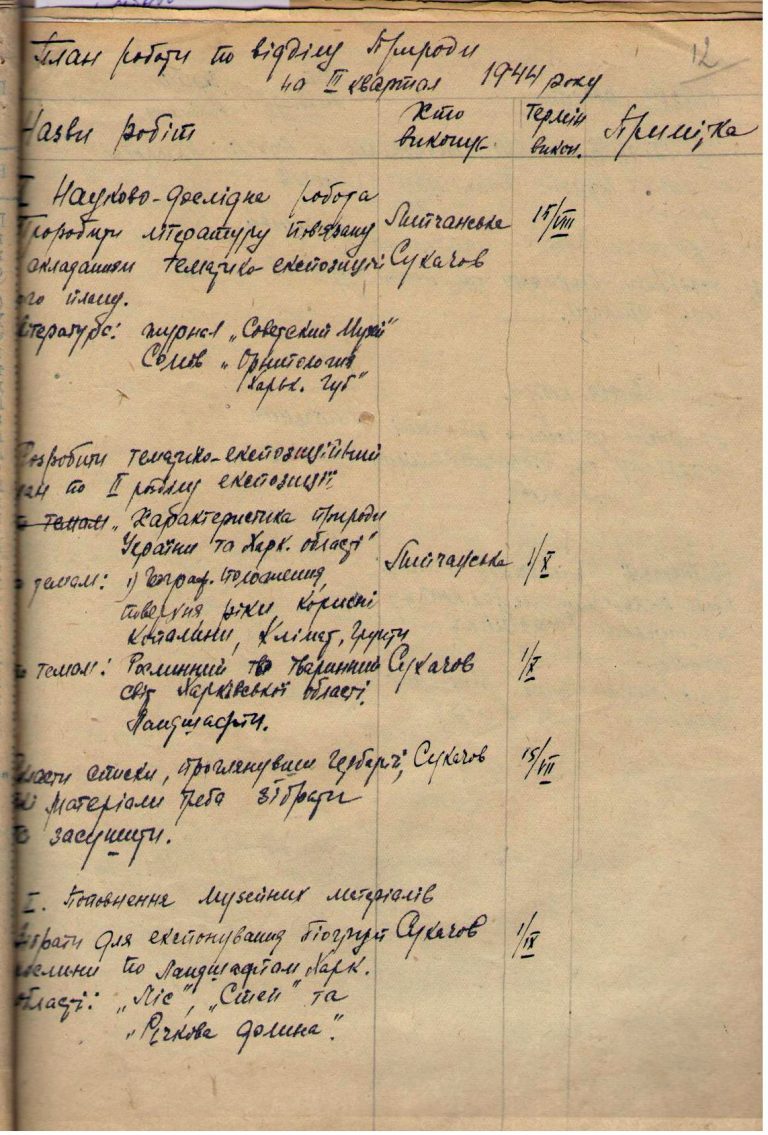 12
План роботи по відділу Природи
на III квартал 1944 року
Назви робіт Хто викону. Термін викон. Примітка
I Науково-дослідна робота
Проробити літературу пов'язану Липчанська 15/VIII
складанням тематико-експозиції Сукачов
ого плану.
література: журнал „Советский Музей"
Сомов „Орнитология
Харьк. Губ"
Розробити тематико-експозиційний
план по II розділу експозиції
„Характеристика природи
України та Харк. області"
темам: 1) Географ. положення, Липчанська 1/X
поверхня ріки, корисні
копалини, клімат, грунти
темам: Рослинний та тваринний Сукачов 1/X
світ Харківської області.
Ландшафти.
списки, проглянувши гербарії, Сукачов 15/VII
які матеріали треба зібрати
та засушити.
I. Поповнення музейних матеріалів
Зібрати для експонування Сукачов 1/IX
рослини по ландшафтам Харк.
області: „Ліс", „Степ" та
„Річкова долина".